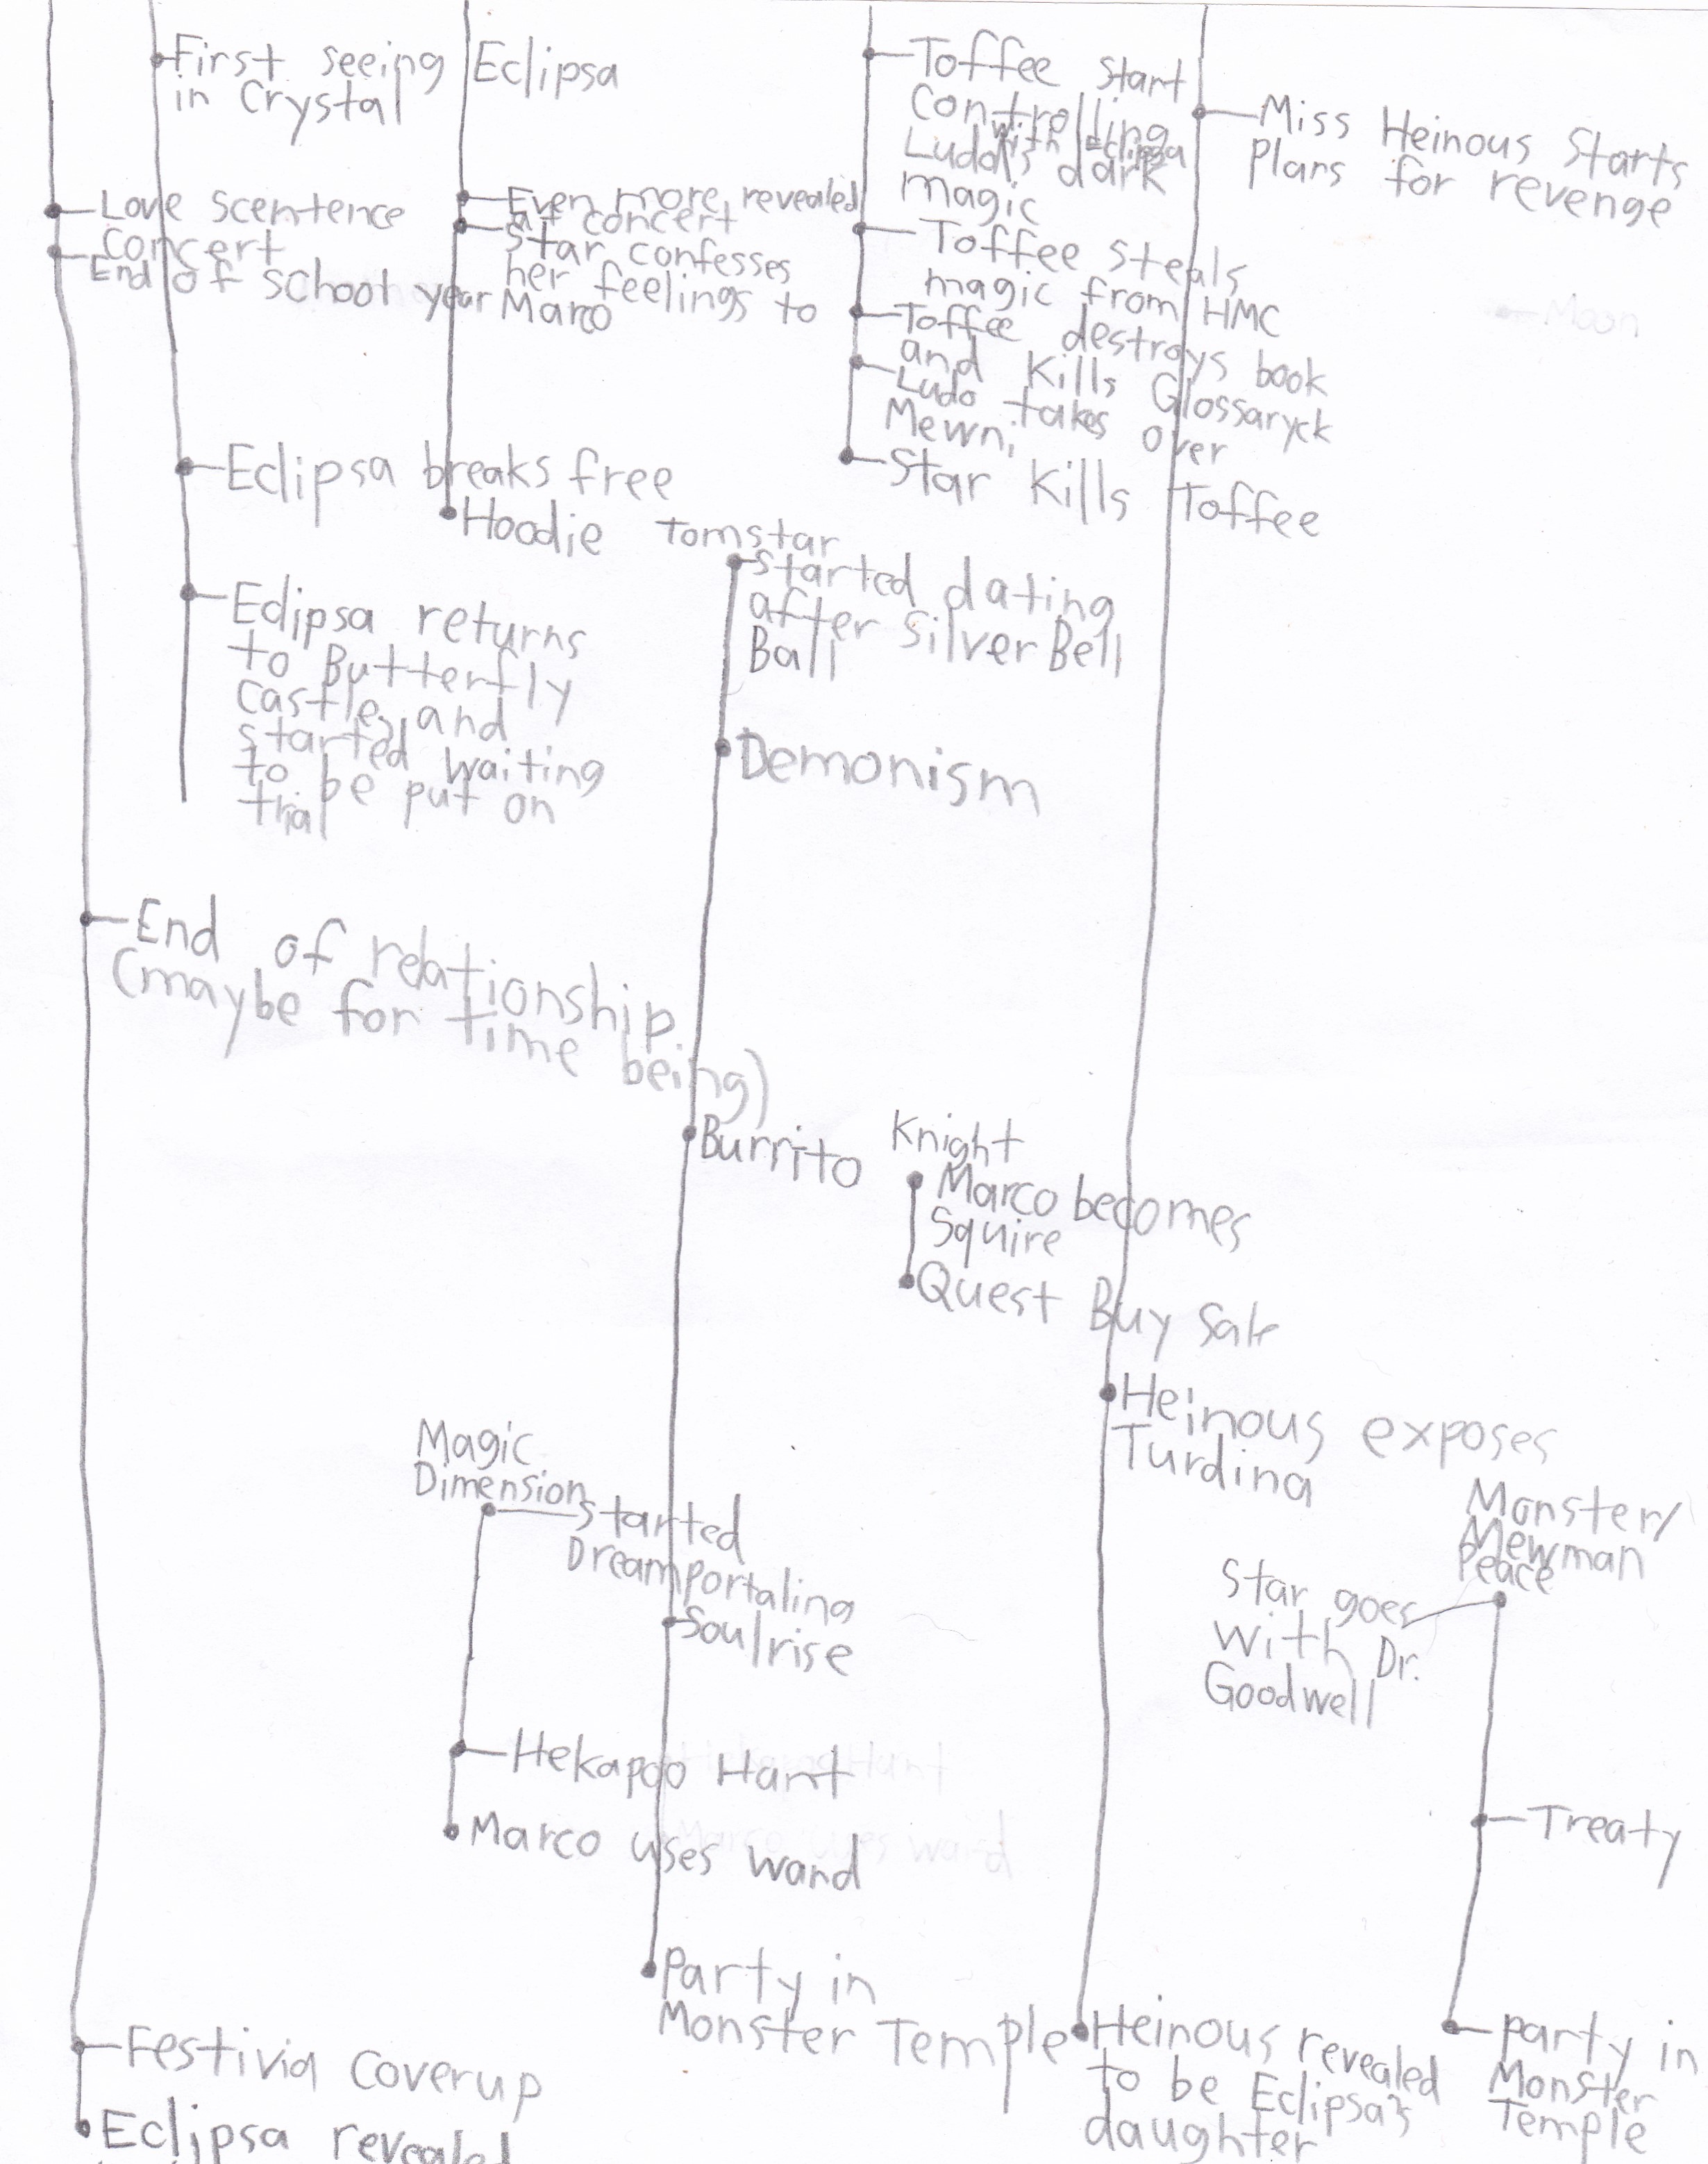 First seeing Eclipsa
in Crystal
Love Scentence
Concert
End of school year
Even more revealed
at concert
Star confesses
her feelings to
Marco
Toffee start
controlling
Ludo
with Eclipsa's dark
magic
Toffee steals
magic from HMC
Toffee destroys book
and kills Glossaryck
Ludo takes over
Mewni
Star kills Toffee
Miss Heinous Starts
Plans for revenge
Moon
Eclipsa breaks free
Hoodie
Eclipsa returns
to Butterfly
Castle, and
started waiting
to be put on
trial
Tomstar
started dating
after Silver Bell
Ball
Demonism
End of relationship
(maybe for time being)
Burrito
Knight
Marco becomes
Squire
Quest Buy Sale
Heinous exposes
Turdina
Magic
Dimension
started
Dreamportaling
Soulrise
Hekapoo Hant
Marco uses wand
Monster/
Mewman
Peace
Star goes
with Dr.
Goodwell
Treaty
Party in
Monster Temple
Heinous revealed
to be Eclipsa's
daughter
party in
Monster
Temple
Festivia coverup
Eclipsa revealed